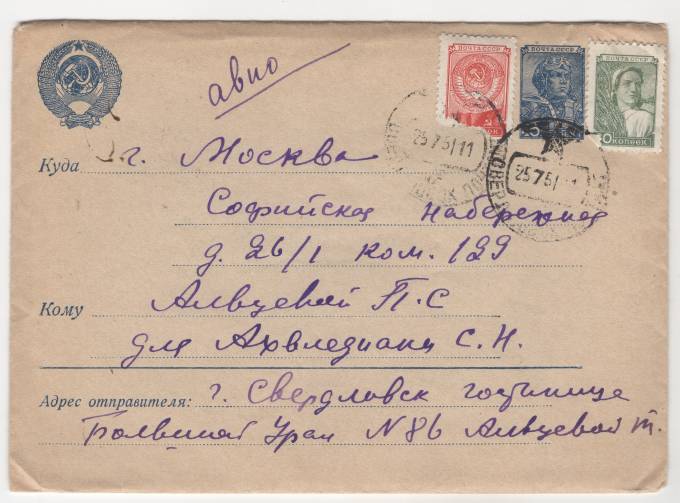 авио
ПОЧТА СССР
ПОЧТА СССР
ПОЧТА СССР
КОПЕЕК
25 7 51 11
25 7 51
Куда г. Москва
Софийская набережная
д. 26/1 ком. 129
Кому Альцевой П.С
для Ахвледиани С.Н.
Адрес отправителя: г. Свердловск гостинице
Большой Урал N 86 Альцевой т.